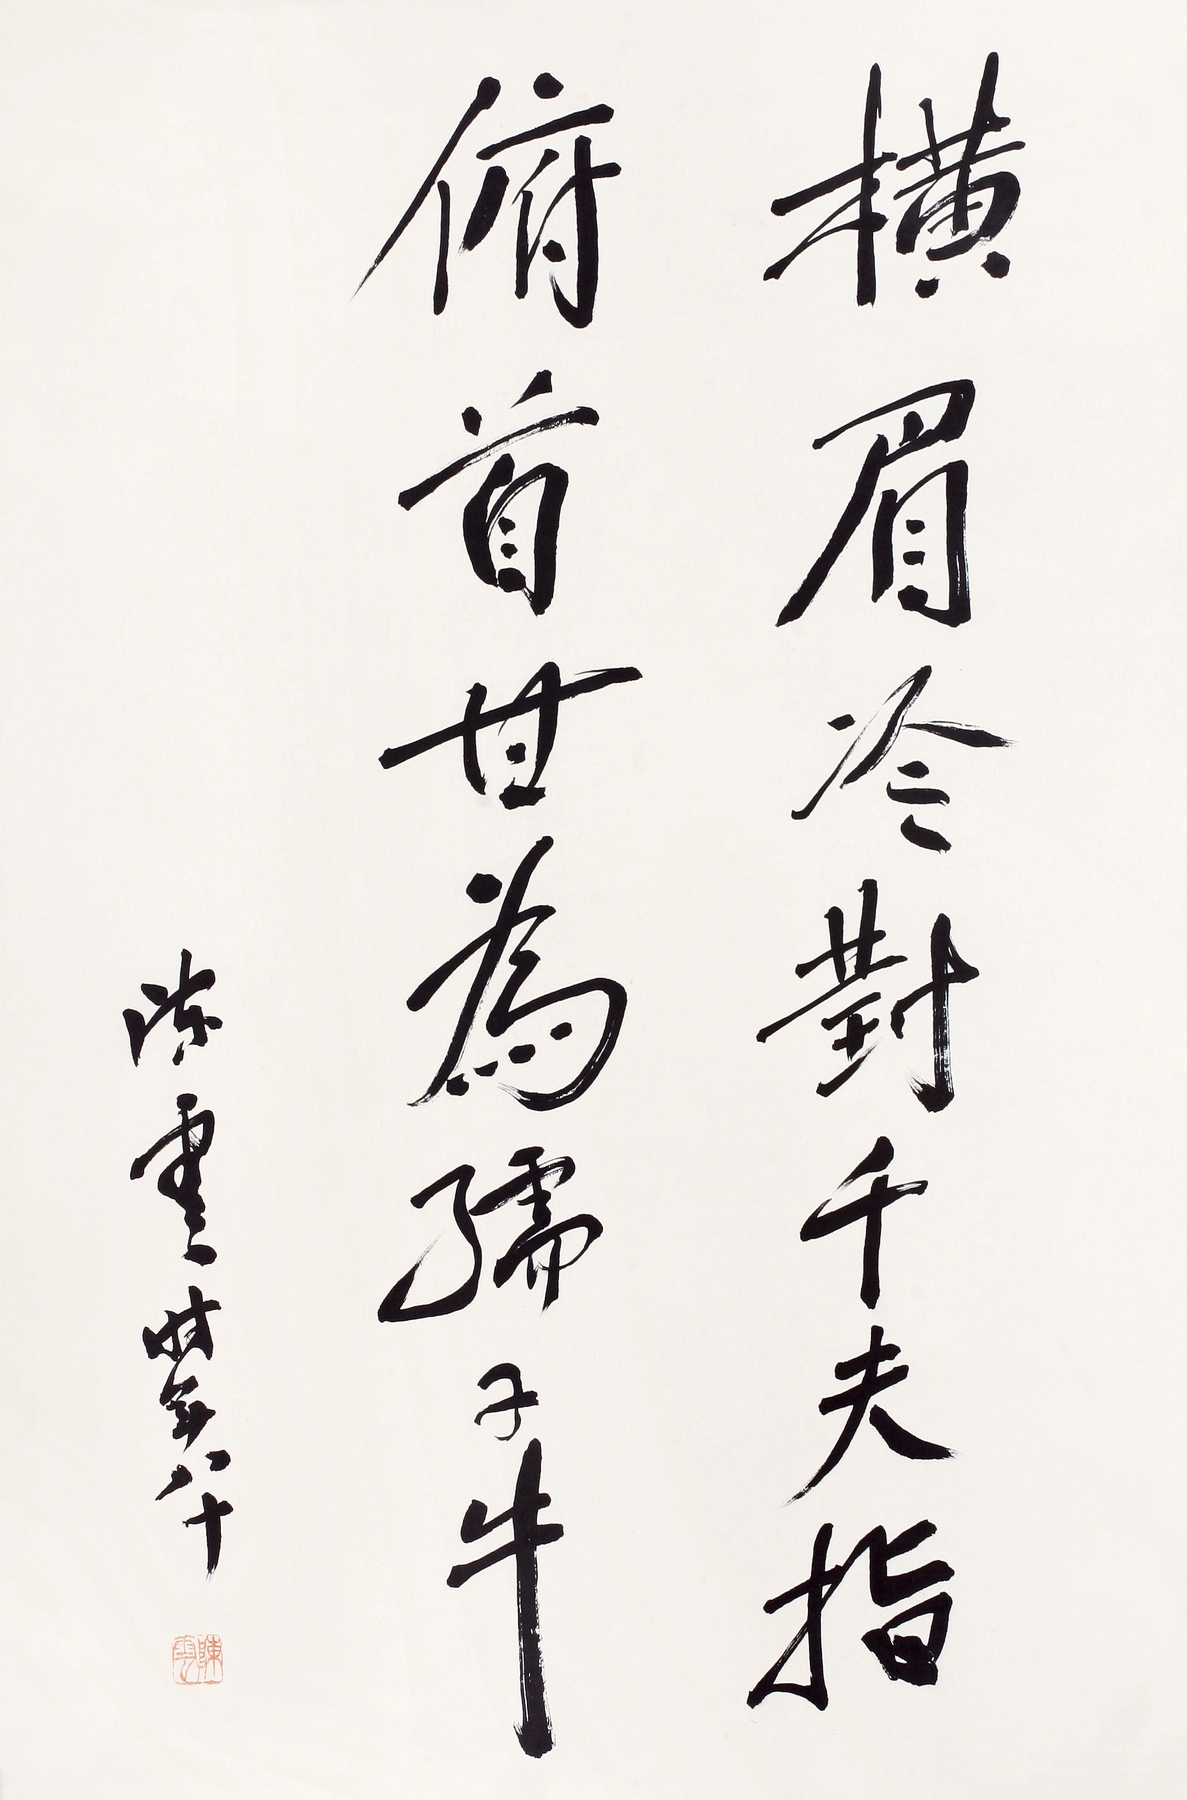 橫眉冷對千夫指
俯首甘為孺子牛
陳雲時年八十
陳雲